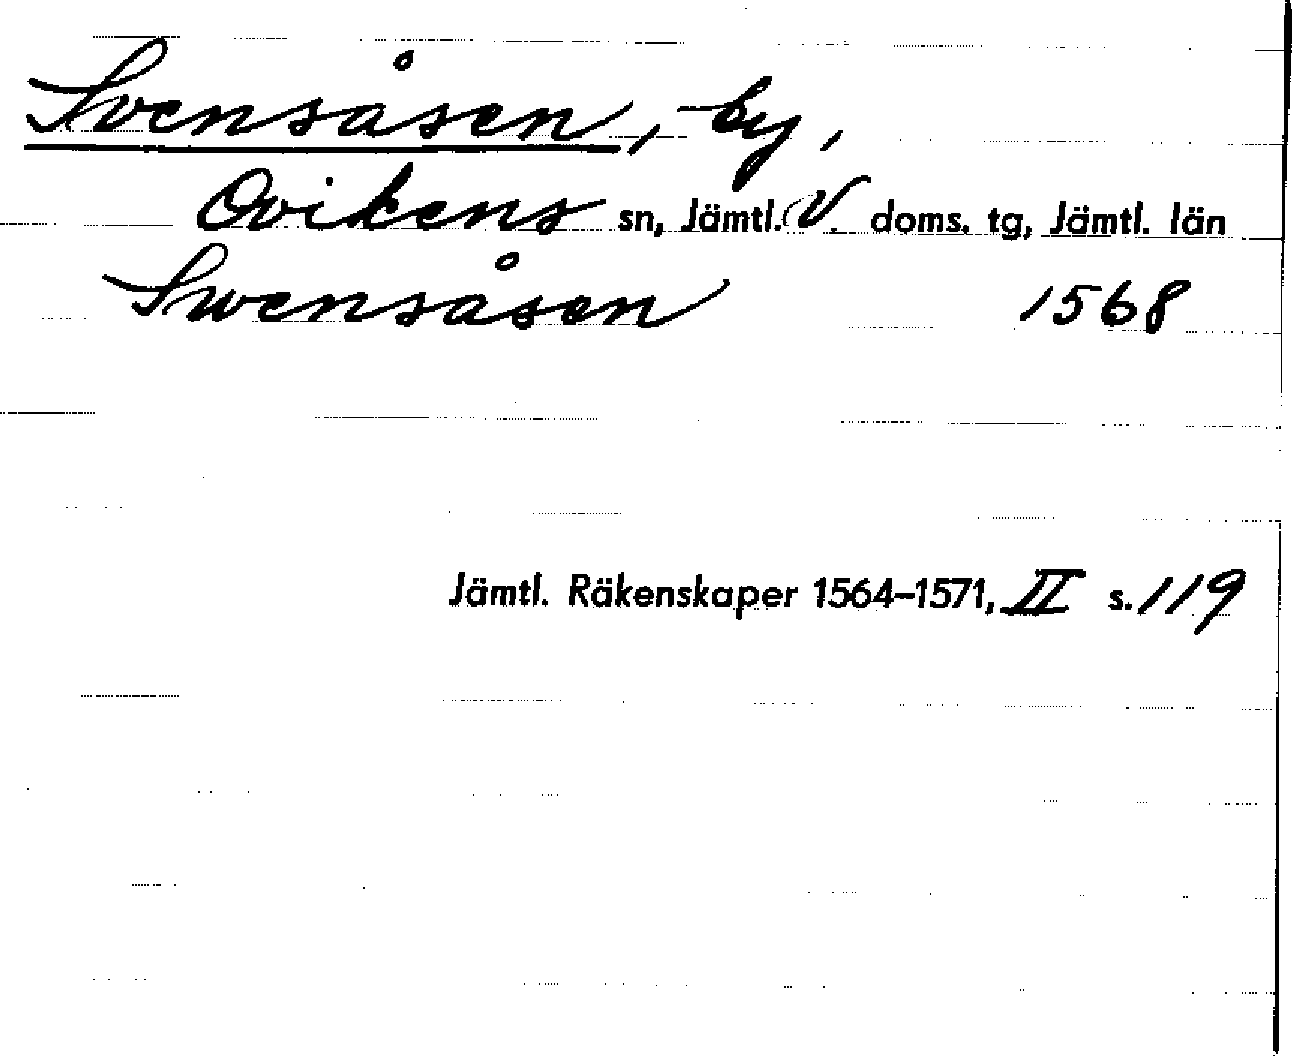 Svensåsen, by,
Ovikens sn, Jämtl. V. doms. tg, Jämtl. län
Swensåsen 1568
Jämtl. Räkenskaper 1564–1571, II s. 119